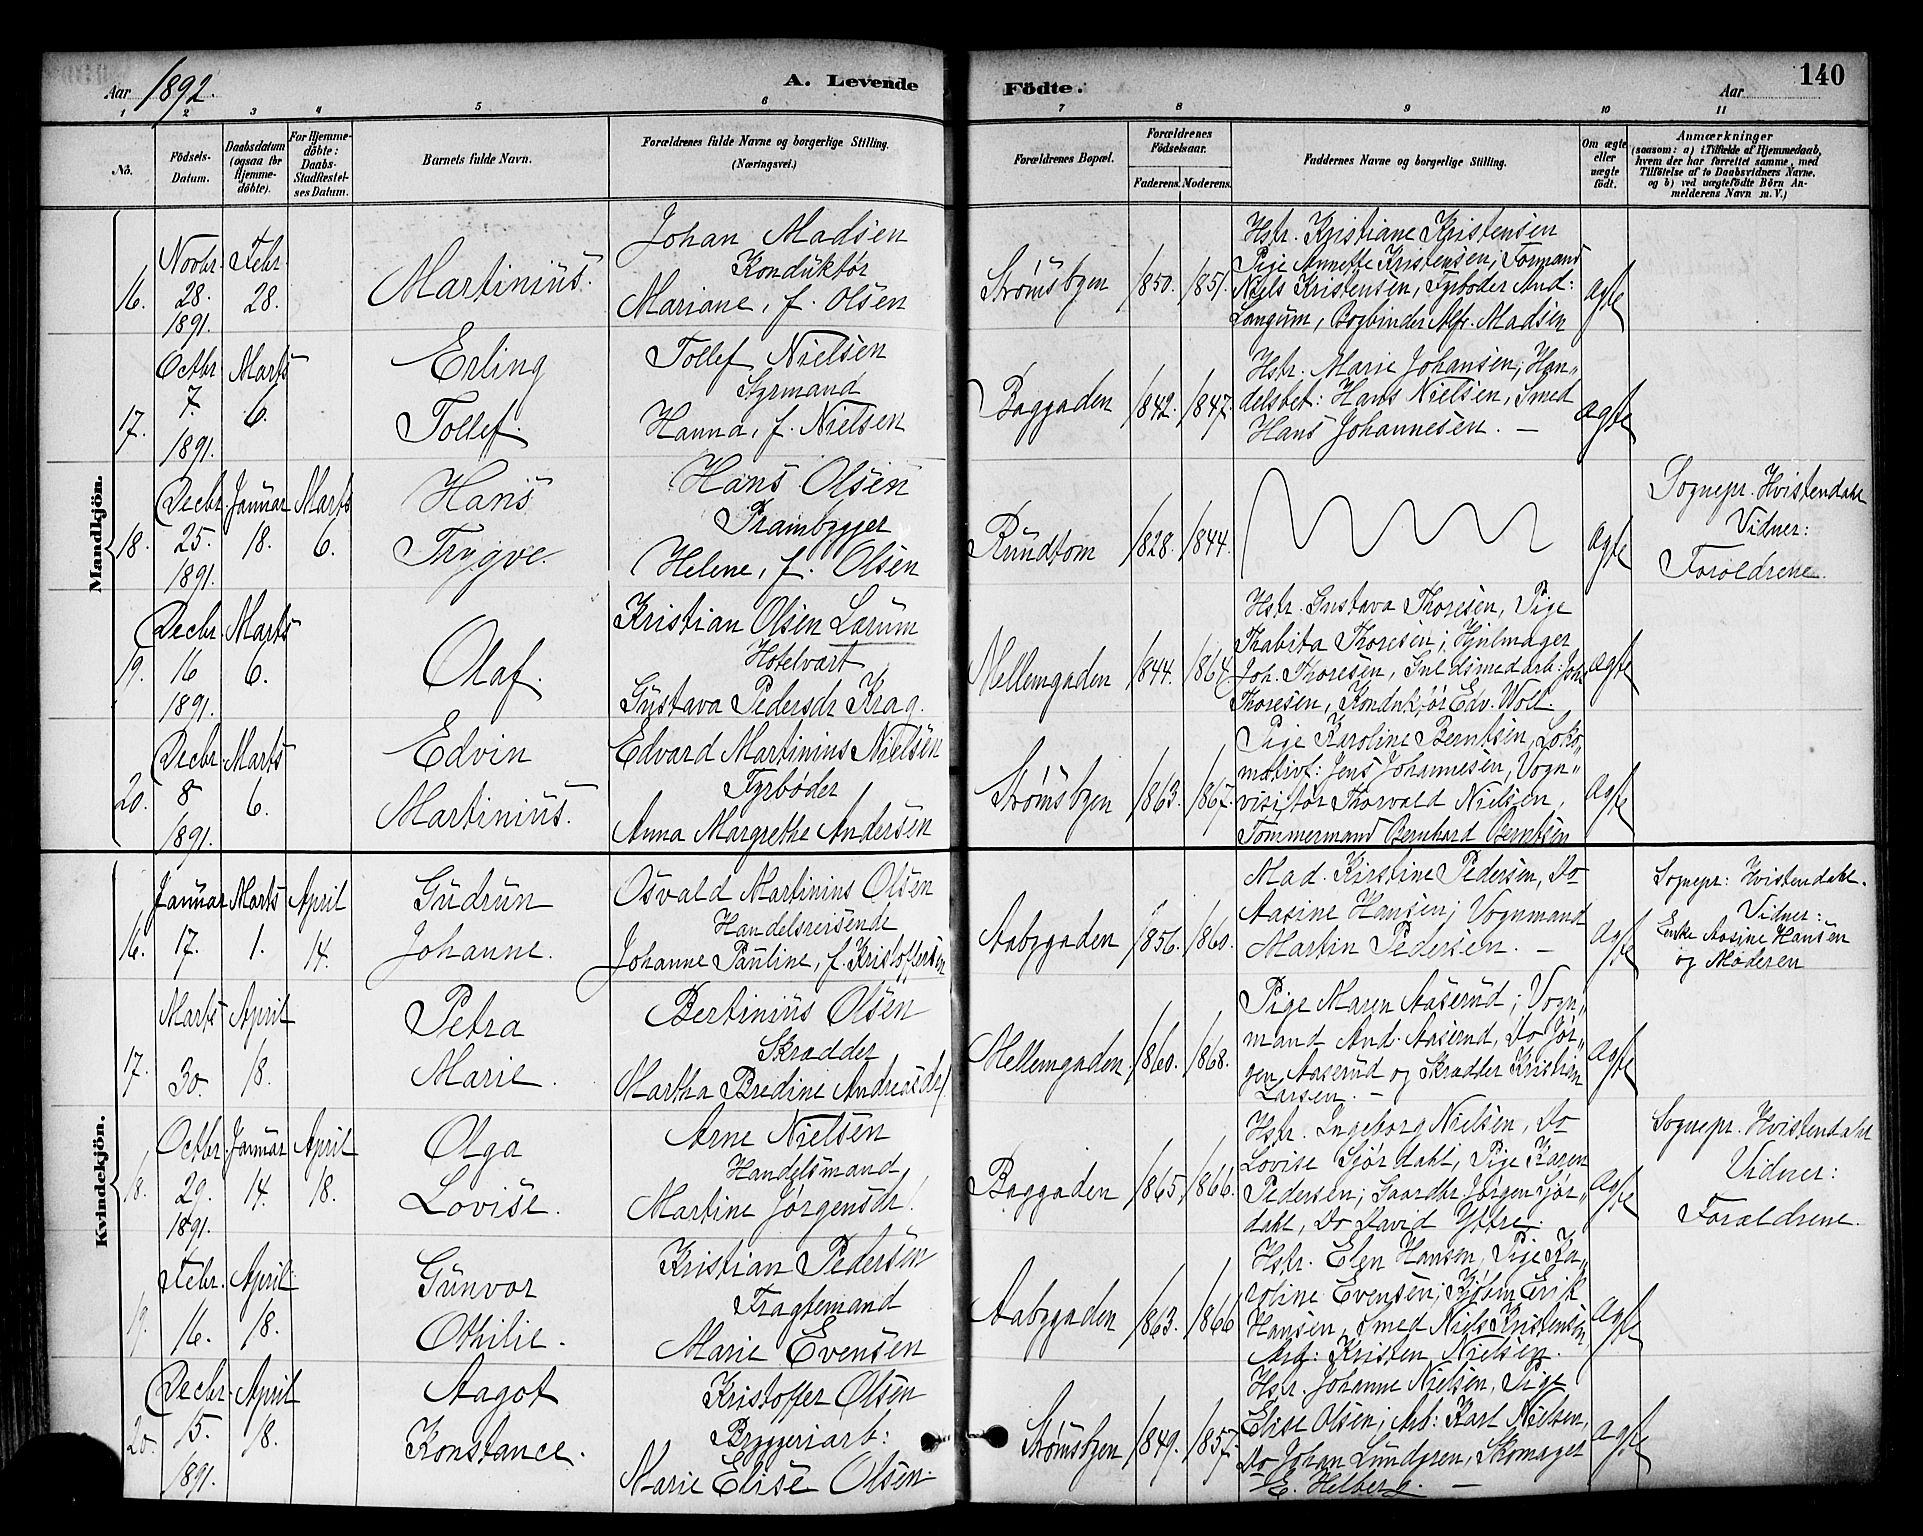 140
Aar 1892. A. Levende Födte. Aar
1 2 3 4 5 6 7 8 9 10 11
No. Födsels-Datum. Daabsdatum (ogsaa for Hjemme-döbte). For Hjemme-döbte: Daabs-Stadfæstel-ses Datum. Barnets fulde Navn. Forældrenes fulde Navne og borgerlige Stilling. (Næringsvei.) Forældrenes Bopæl. Forældrenes Födselsaar. Faderens. Moderens. Faddernes Navne og borgerlige Stilling. Om ægte eller uægte födt. Anmærkninger (saasom: a) i Tilfælde af Hjemmedaab, hvem der har forrettet samme, med Tilföielse af to Daabsvidners Navne, og b) ved uægtefödte Börn An-melderens Navn m. V.)
Mandkjön.
16. Novbr. 28. 1891. Febr. 28. Martinius. Johan Madsen
Konduktør
Mariane, f. Olsen
Strømsbyen 1850. 1851.
Hstr. Kristiane Kristensen
Pige Annette Kristensen; Formand
Niels Kristensen, Fyrbøder And:
Langum, Bogbinder Alfr. Madsen
ægte
17. Octbr 7. 1891. Marts 6. Erling
Tollef.
Tollef Nielsen
Styrmand
Hanna, f. Nielsen
Baggaden 1842. 1847.
Hstr. Marie Johansen; Han-
delsbet: Hans Nielsen, Smed
Hans Johannesen. —
ægte
18. Decbr. 25. 1891. Januar 18. Marts 6. Hans
Trygve.
Hans Olsen
Prambygger
Helene, f. Olsen
Rundtom 1828. 1844.
ægte
Sognepr. Hvistendahl
Vidner:
Forældrene.
19. Decbr. 16 1891. Marts 6. Olaf.
Kristian Olsen Lærum
Hotelvært
Gustava Pedersdr Krag.
Mellemgaden 1844. 1864
Hstr. Gustava Thoresen, Pige
Thabita Thoresen; Hjulmager
Joh. Thoresen, Guldsmedarb: Joh.
Thoresen, Konduktør Edv. Wolt.
ægte
20. Decbr. 8 1891. Marts 6. Edvin
Martinius.
Edvard Martinius Nielsen
Fyrbøder
Anna Margrethe Andersen
Strømsbyen 1863. 1867.
Pige Karoline Berntsen, Loko-
motivf: Jens Johannesen, Vogn-
visitør Thorvald Nielsen,
Tømmermand Bernhard Berntsen
ægte
Kvindekjön.
16. Januar 17. Marts 1. April 14. Gudrun
Johanne.
Osvald Martinius Olsen
Handelsreisende
Johanne Pauline, f. Kristoffersen
Aabygaden 1856. 1860.
Mad. Kirstine Pedersen, Do
Aasine Hansen; Vognmand
Martin Pedersen. —
ægte
Sognepr: Hvistendahl.
Vidner:
Enke Aasine Hansen
og Moderen
17. Marts 30. April 18. Petra
Marie.
Bertinius Olsen
Skrædder
Martha Bredine Andreasdr.
Mellemgaden. 1860. 1868.
Pige Maren Aaserud; Vogn-
mand And. Aaserud, Do Jør-
gen Aaserud og Skrædder Kristian
Larsen. —
ægte
18. Octbr. 29. 1891. Januar 14. April 18. Olga
Lovise.
Arne Nielsen
Handelsmand
Martine Jørgensdr.
Baggaden 1865. 1866.
Hstr. Ingeborg Nielsen, Do
Lovise Gjørdahl, Pige Karen
Pedersen; Gaardbr Jørgen Gjør-
dahl, Do David Yttre.
ægte
Sognepr. Hvistendahl
Vidner:
Forældrene.
19. Febr. 16. April 18. Gunvor
Othilie.
Kristian Pedersen
Fragtemand
Marie Evensen
Aabygaden 1863. 1866
Hstr. Elen Hansen, Pige Ka-
roline Evensen; Kjøbm Erik
Hansen, Smed Niels Kristensen
Arb: Kristen Nielsen.
ægte
20. Decbr. 15. 1891. April 18. Aagot
Konstance.
Kristoffer Olsen
Bryggeriarb:
Marie Elise Olsen
Strømsbyen 1849. 1857.
Hstr. Johanne Nielsen, Pige
Elise Olsen; Arb: Karl Nielsen,
Do Johan Lundgren, Skomager
E. Helberg. —
ægte